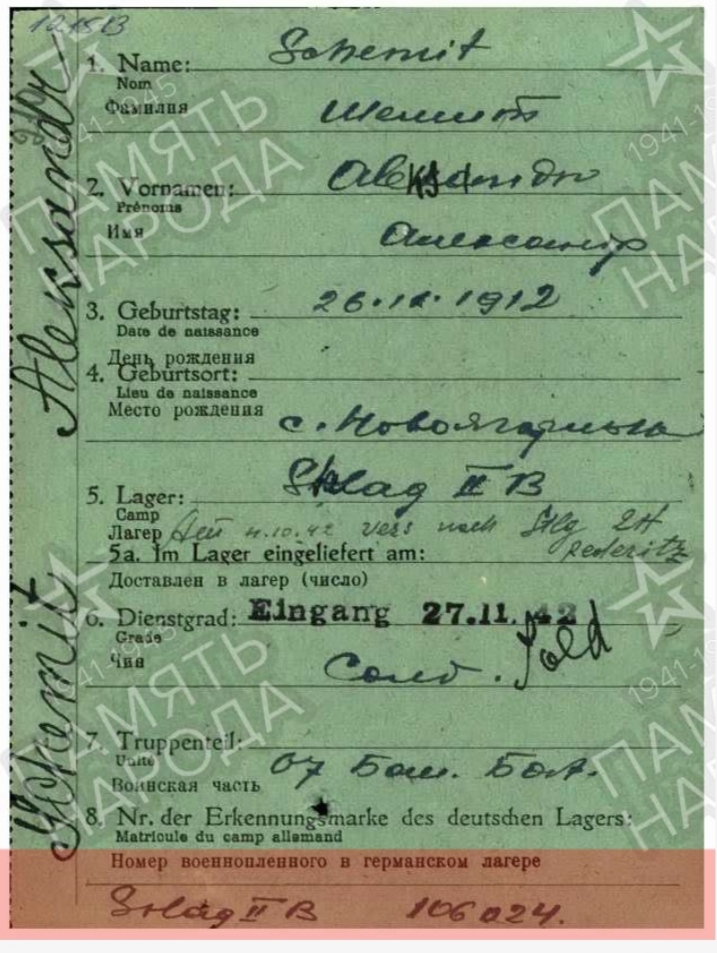 12153
1. Name: Schemit
Nom
Фамилия Шемит
2. Vornamen: Aleksandr
Prénoms
Имя Александр
3. Geburtstag: 26.11.1912
Date de naissance
День рождения
4. Geburtsort:
Lieu de naissance
Место рождения
с.
5. Lager: Stalag II B
Camp
Лагер 4.10.42 vers nach Stlg 2H
Rederitz
5a. Im Lager eingeliefert am:
Доставлен в лагер (число)
6. Dienstgrad: Eingang 27.11.42
Grade
Чин Солд. Sold
7. Truppenteil:
Unité
Воинская часть 07 Бат.
8. Nr. der Erkennungsmarke des deutschen Lagers:
Matricule du camp allemand
Номер военнопленного в германском лагере
Stalag II B 106024.
Schemit Aleksandr
ПАМЯТЬ
НАРОДА
1941-1945